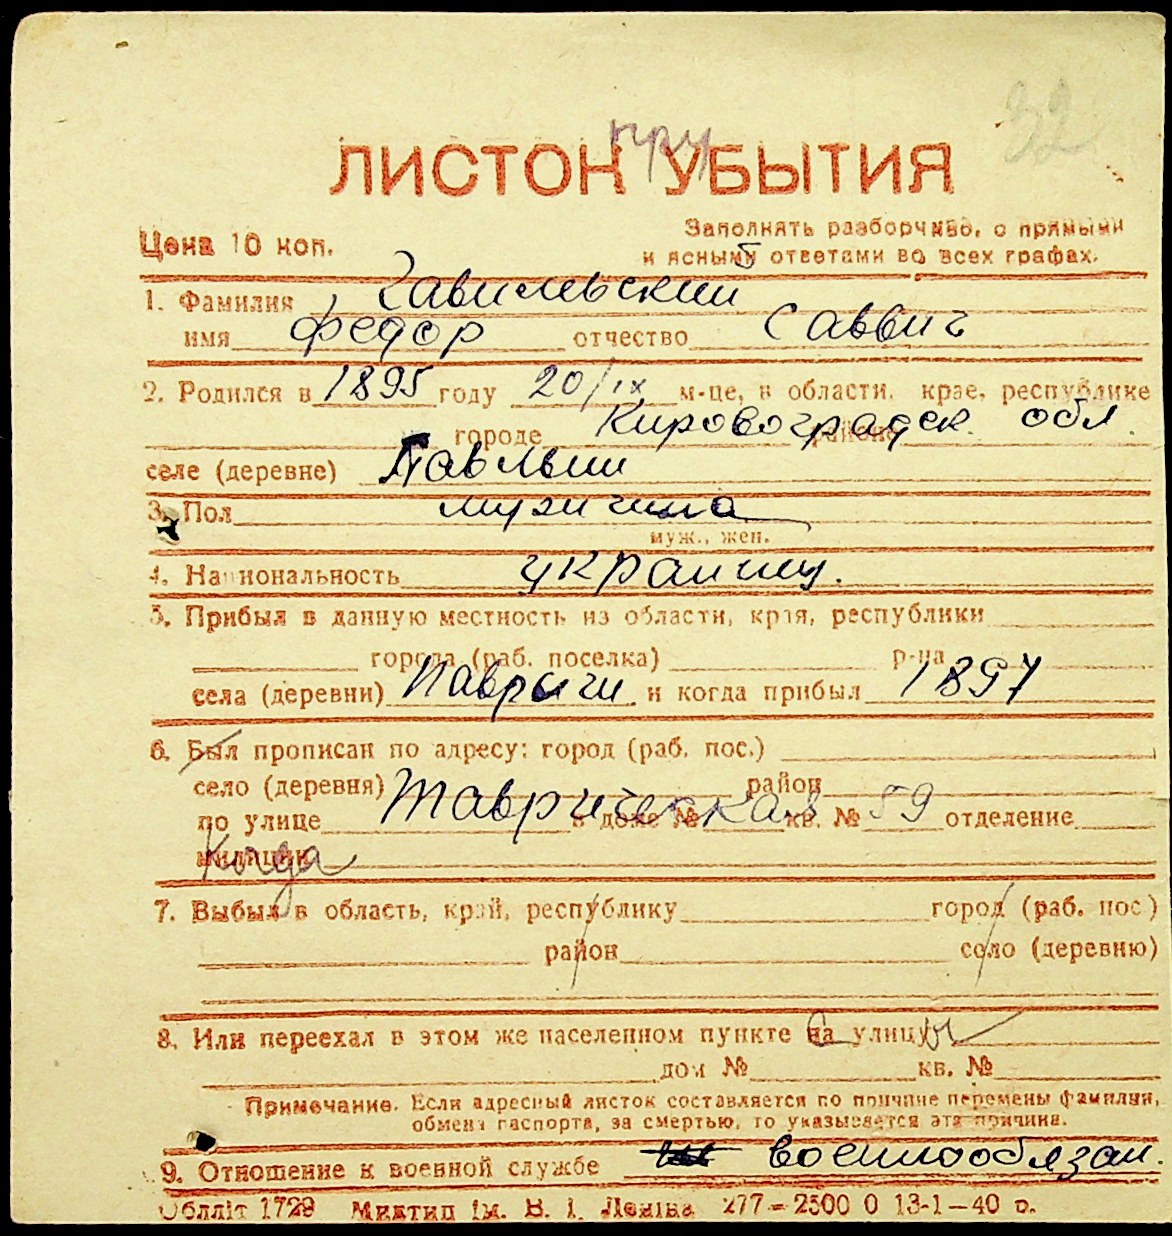 32
при
ЛИСТОК УБЫТИЯ
Цена 10 коп.
Заполнять разборчиво, с прямыми
и ясными ответами во всех графах.
1. Фамилия Гавилевский
имя Федор отчество Саввич
2. Родился в 1895 году 20/IX м-це, в области, крае, республике
Кировоградск. обл.
городе районе
селе (деревне)
3. Пол мужчина
муж., жен.
4. Национальность украинец.
5. Прибыл в данную местность из области, края, республики
города (раб. поселка) р-на
села (деревни) и когда прибыл 1897
6. Был прописан по адресу: город (раб. пос.)
село (деревня) район
по улице Таврическая в доме № кв. № 59 отделение
милиции
Когда
7. Выбыл в область, край, республику город (раб. пос.)
район село (деревню)
8. Или переехал в этом же населенном пункте на улицу
дом № кв. №
Примечание. Если адресный листок составляется по причине перемены фамилии,
обмена паспорта, за смертью, то указывается эта причина.
9. Отношение к военной службе военнообязан.
Обллiт 1729 Миктип iм. В. I. Ленiна 277—2500 0 13-1—40 р.